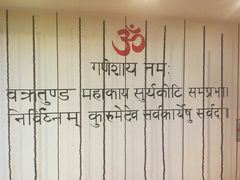 ॐ
गणेशाय नमः
वक्रतुण्ड महाकाय सुर्यकोटि समप्रभ।।
निर्विघ्नम् कुरुमेदेव सर्वकार्येषु सर्वदा।।